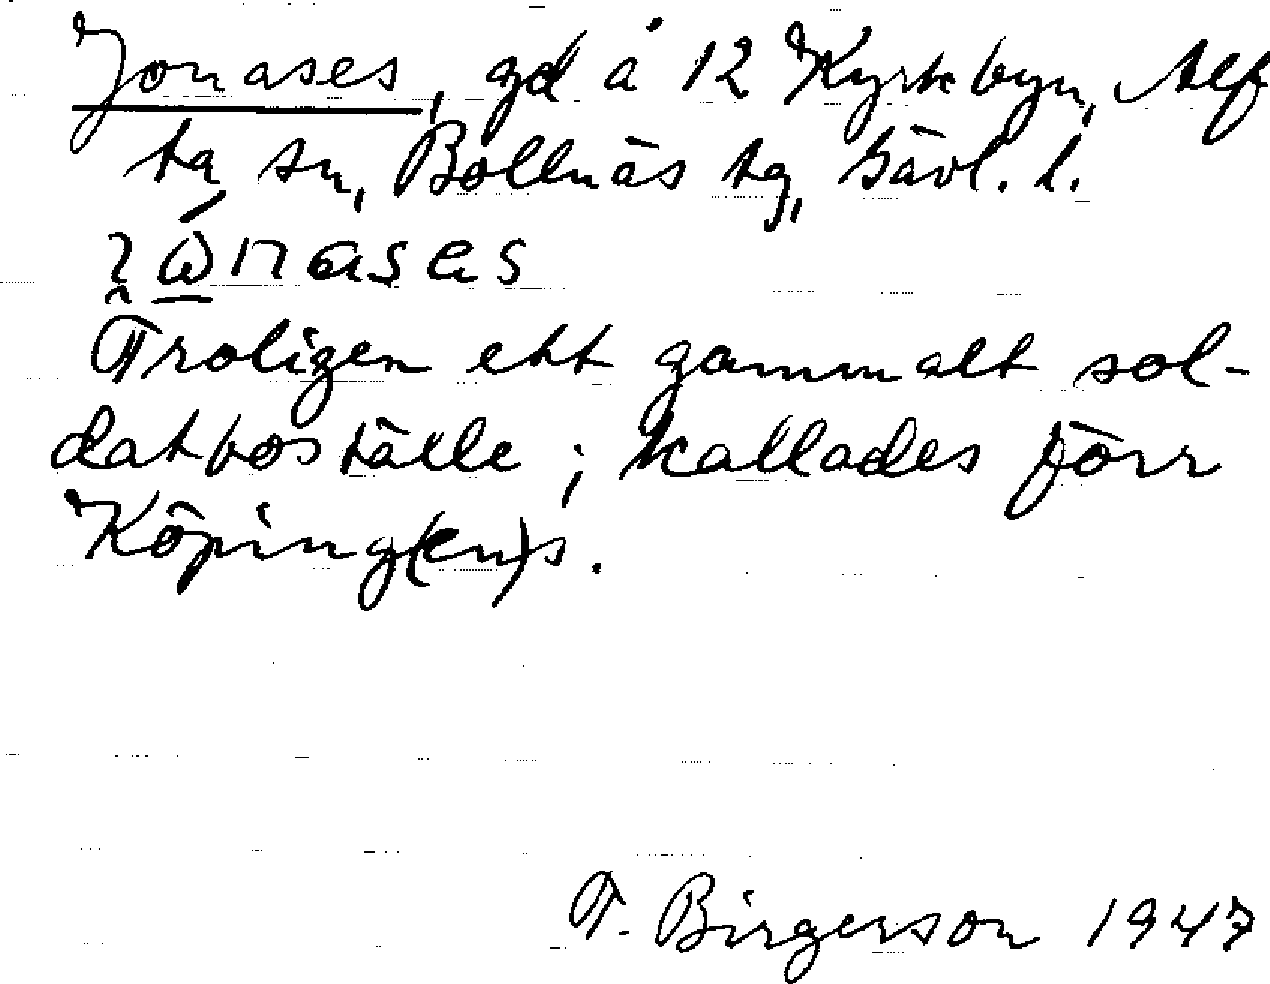 Jonases, gd å 12 Kyrkbyn, Alf
ta sn, Bollnäs tg, Gävl. l.
ɿώnases
Troligen ett gammalt sol-
datboställe; kallades förr
Köping(en)s.
T. Birgerson 1947